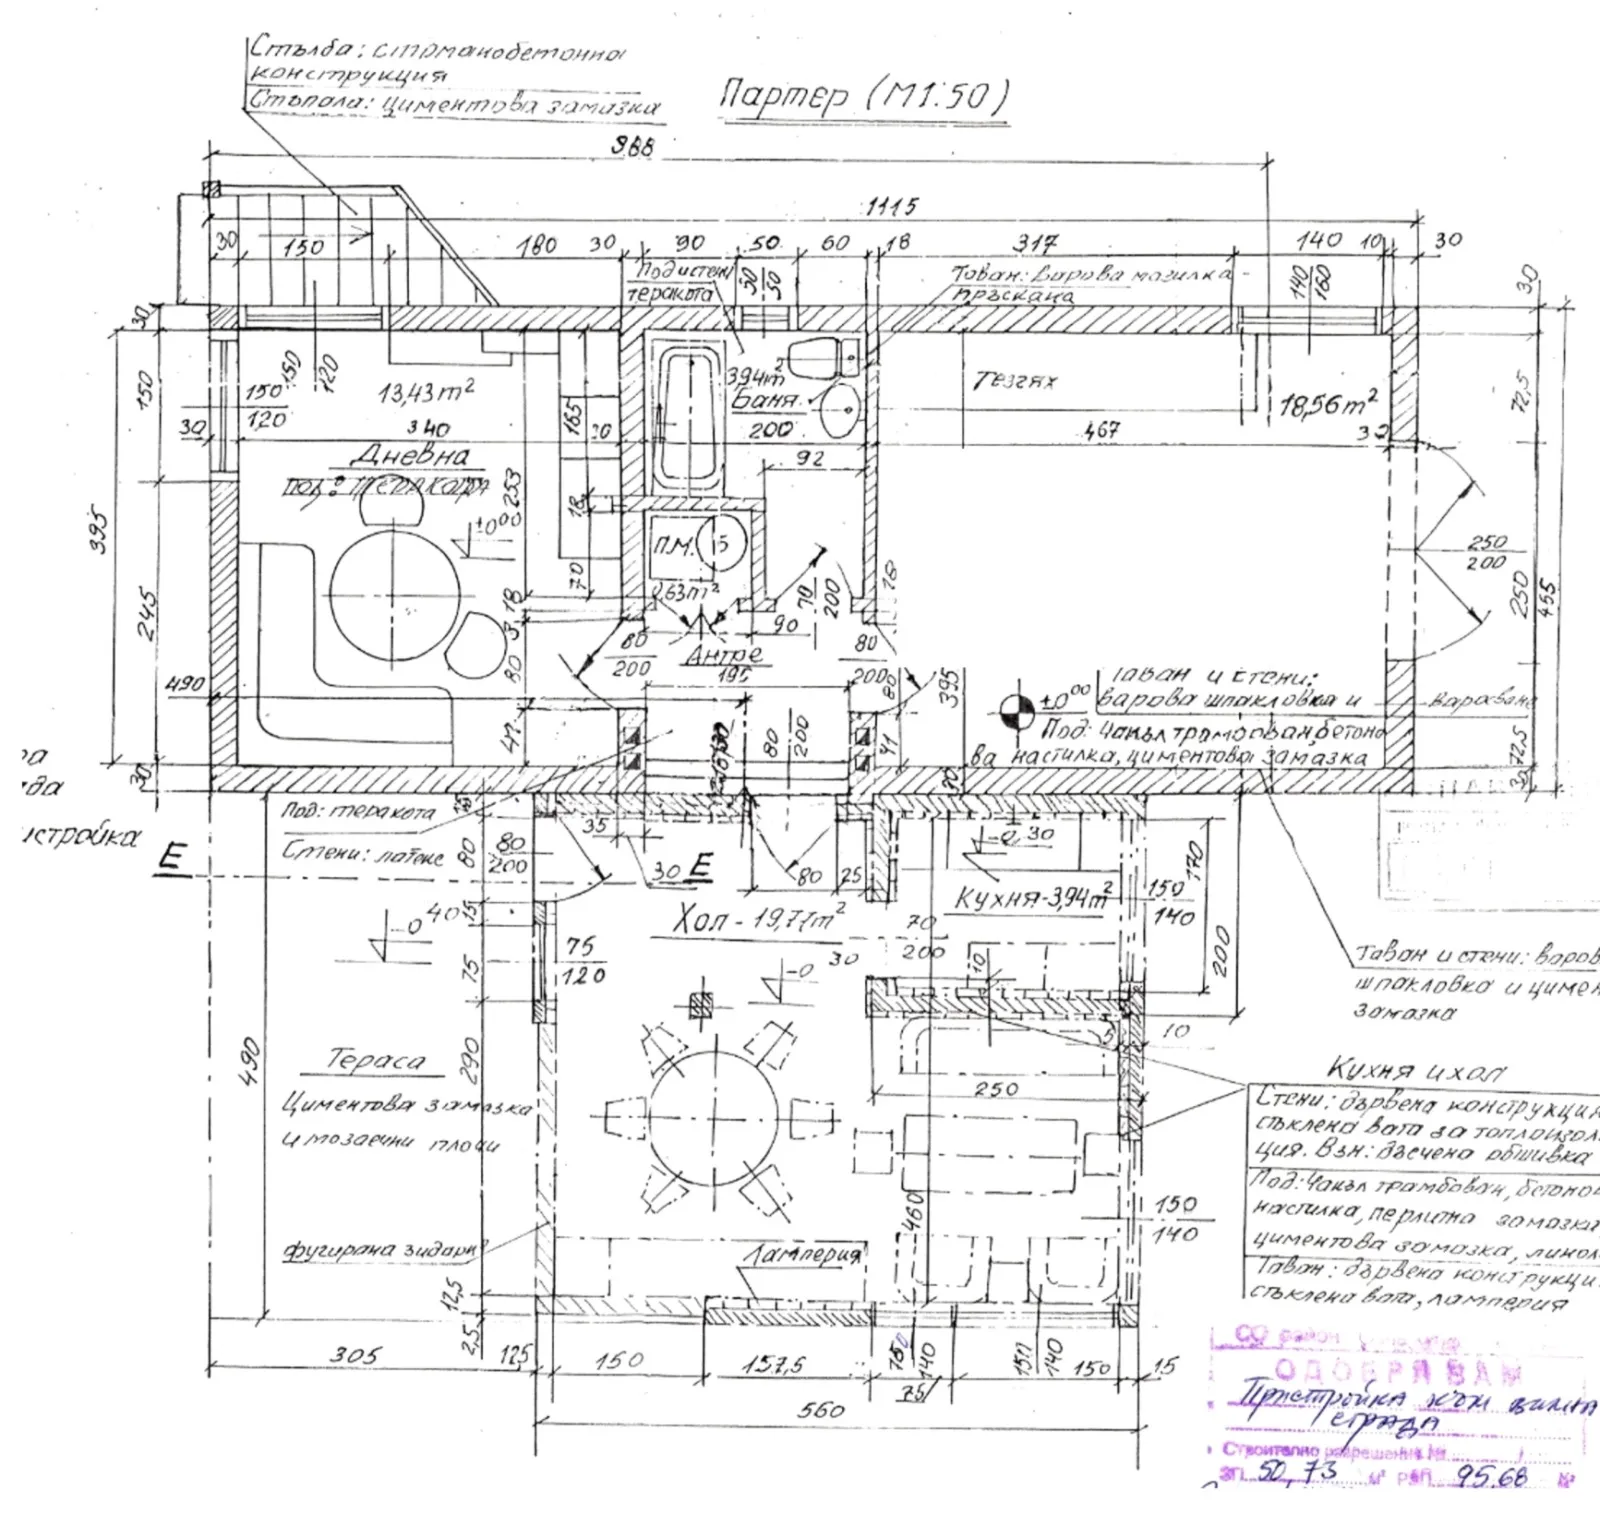 Стълба: стоманобетонна
конструкция
Стъпала: циментова замазка
Партер (М1:50)
988
1115
30 150 180 30 90 50 60 18 317 140 10 30
Под и стени
теракота
50
50
Таван: варова мазилка
пръскана
140
160
30
30
150
150
120
150
120
13,43 m²
340
30
Дневна
под: теракота
±0⁰⁰
165
20
253
18
70
18
3
80
47
3,94 m²
Баня
200
92
П.М.
0,63 m²
90
70
200
18
Тезгях
18,56 m²
467
32
72,5
250
200
250
455
395
245
490
80
200
Антре
195
80
200
80
41
395
80
200
±0⁰⁰
Таван и стени:
варова шпакловка и вароване
Под: Чакъл трамбован, бетоно
ва настилка, циментова замазка
72,5
30
30
истройка
Под: теракота
Стени: латекс
Е
Е
80
80
200
35
30
80 25
-0,30
Кухня - 3,94 m²
150
140
170
200
-0 40
15
75
75
120
Хол - 19,77 m²
70
200
-0 30
10
10
5
250
Таван и стени: варов
шпакловка и цимен
замазка
490
Тераса
Циментова замазка
и мозаечни плочи
290
фугирана зидария
Ламперия
460
150
140
Кухня и хол
Стени: дървена конструкция
стъклена вата за топлоизол
ция. Взн: дъсчена обшивка
Под: Чакъл трамбован, бетоно
настилка, перлитна замазка,
циментова замазка, линол
Таван: дървена конструкци
стъклена вата, ламперия
12,5
2,5
305 12,5 150 157,5 75 150 15
140
150
140
560
СО район
ОДОБРЯВАМ
Пристройка към жилищна
сграда
Строително разрешение №
ЗП 50,73 м² РЗП 95.68 м²